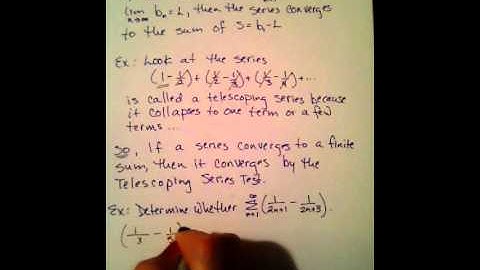 lim bₙ = L, then the series converges
n→∞
to the sum of S = b₁ - L
Ex: Look at the series
(1 - 1/2) + (1/2 - 1/3) + (1/3 - 1/4) + ...
is called a telescoping series because
it collapses to one term or a few
terms ...
So, If a series converges to a finite
sum, then it converges by the
Telescoping Series Test.
Ex: Determine whether ∞Σn=1 (1/2n+1 - 1/2n+3).
(1/3 - 1/